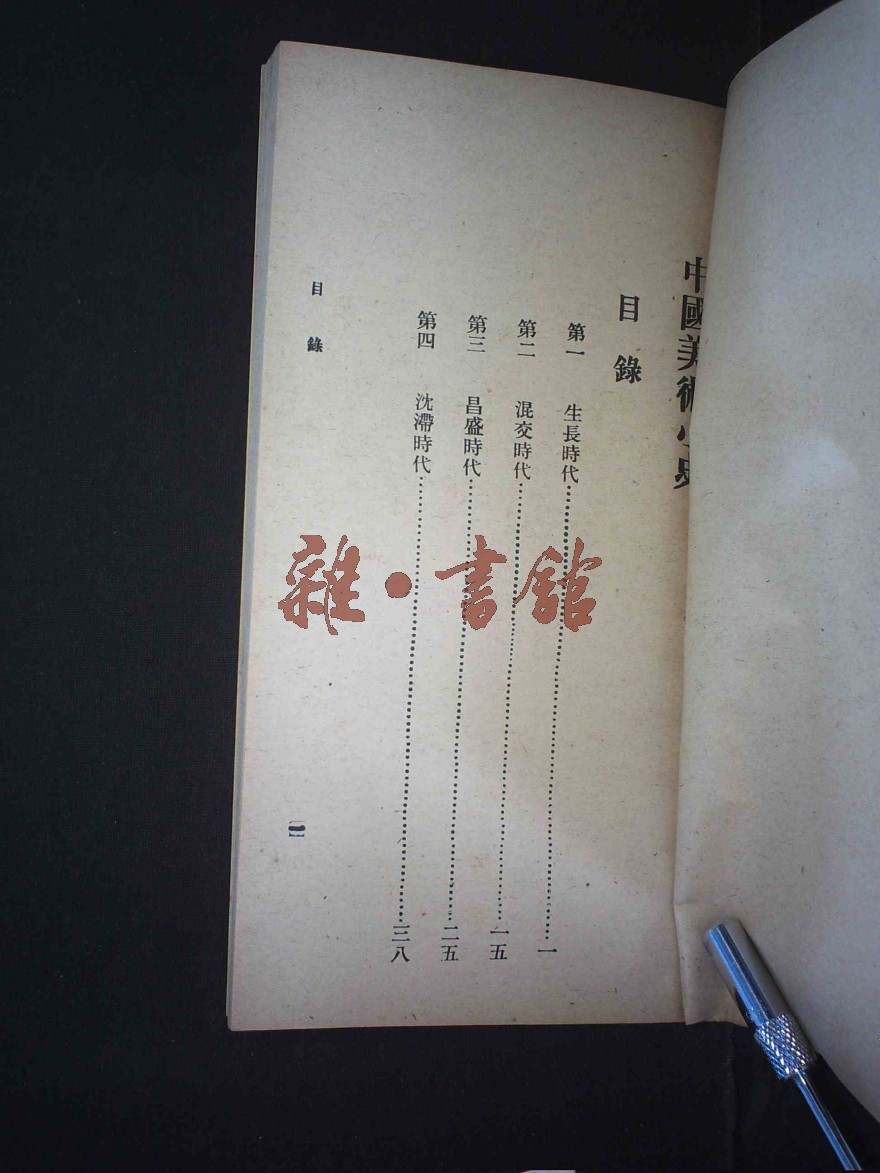 中國美術小史
目錄
第一 生長時代⋯⋯⋯⋯⋯⋯⋯⋯⋯⋯⋯⋯一
第二 混交時代⋯⋯⋯⋯⋯⋯⋯⋯⋯⋯⋯⋯一五
第三 昌盛時代⋯⋯⋯⋯⋯⋯⋯⋯⋯⋯⋯⋯二五
第四 沈滯時代⋯⋯⋯⋯⋯⋯⋯⋯⋯⋯⋯⋯三八
目錄
一
雜·書館